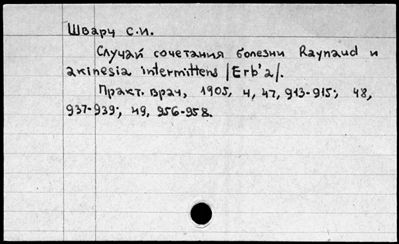 Шварц С.И.
Случай сочетания болезни Raynaud и
akinesia intermittens /Erb'a/.
Практ. врач, 1905, 4, 47, 913-915; 48,
937-939; 49, 956-958.